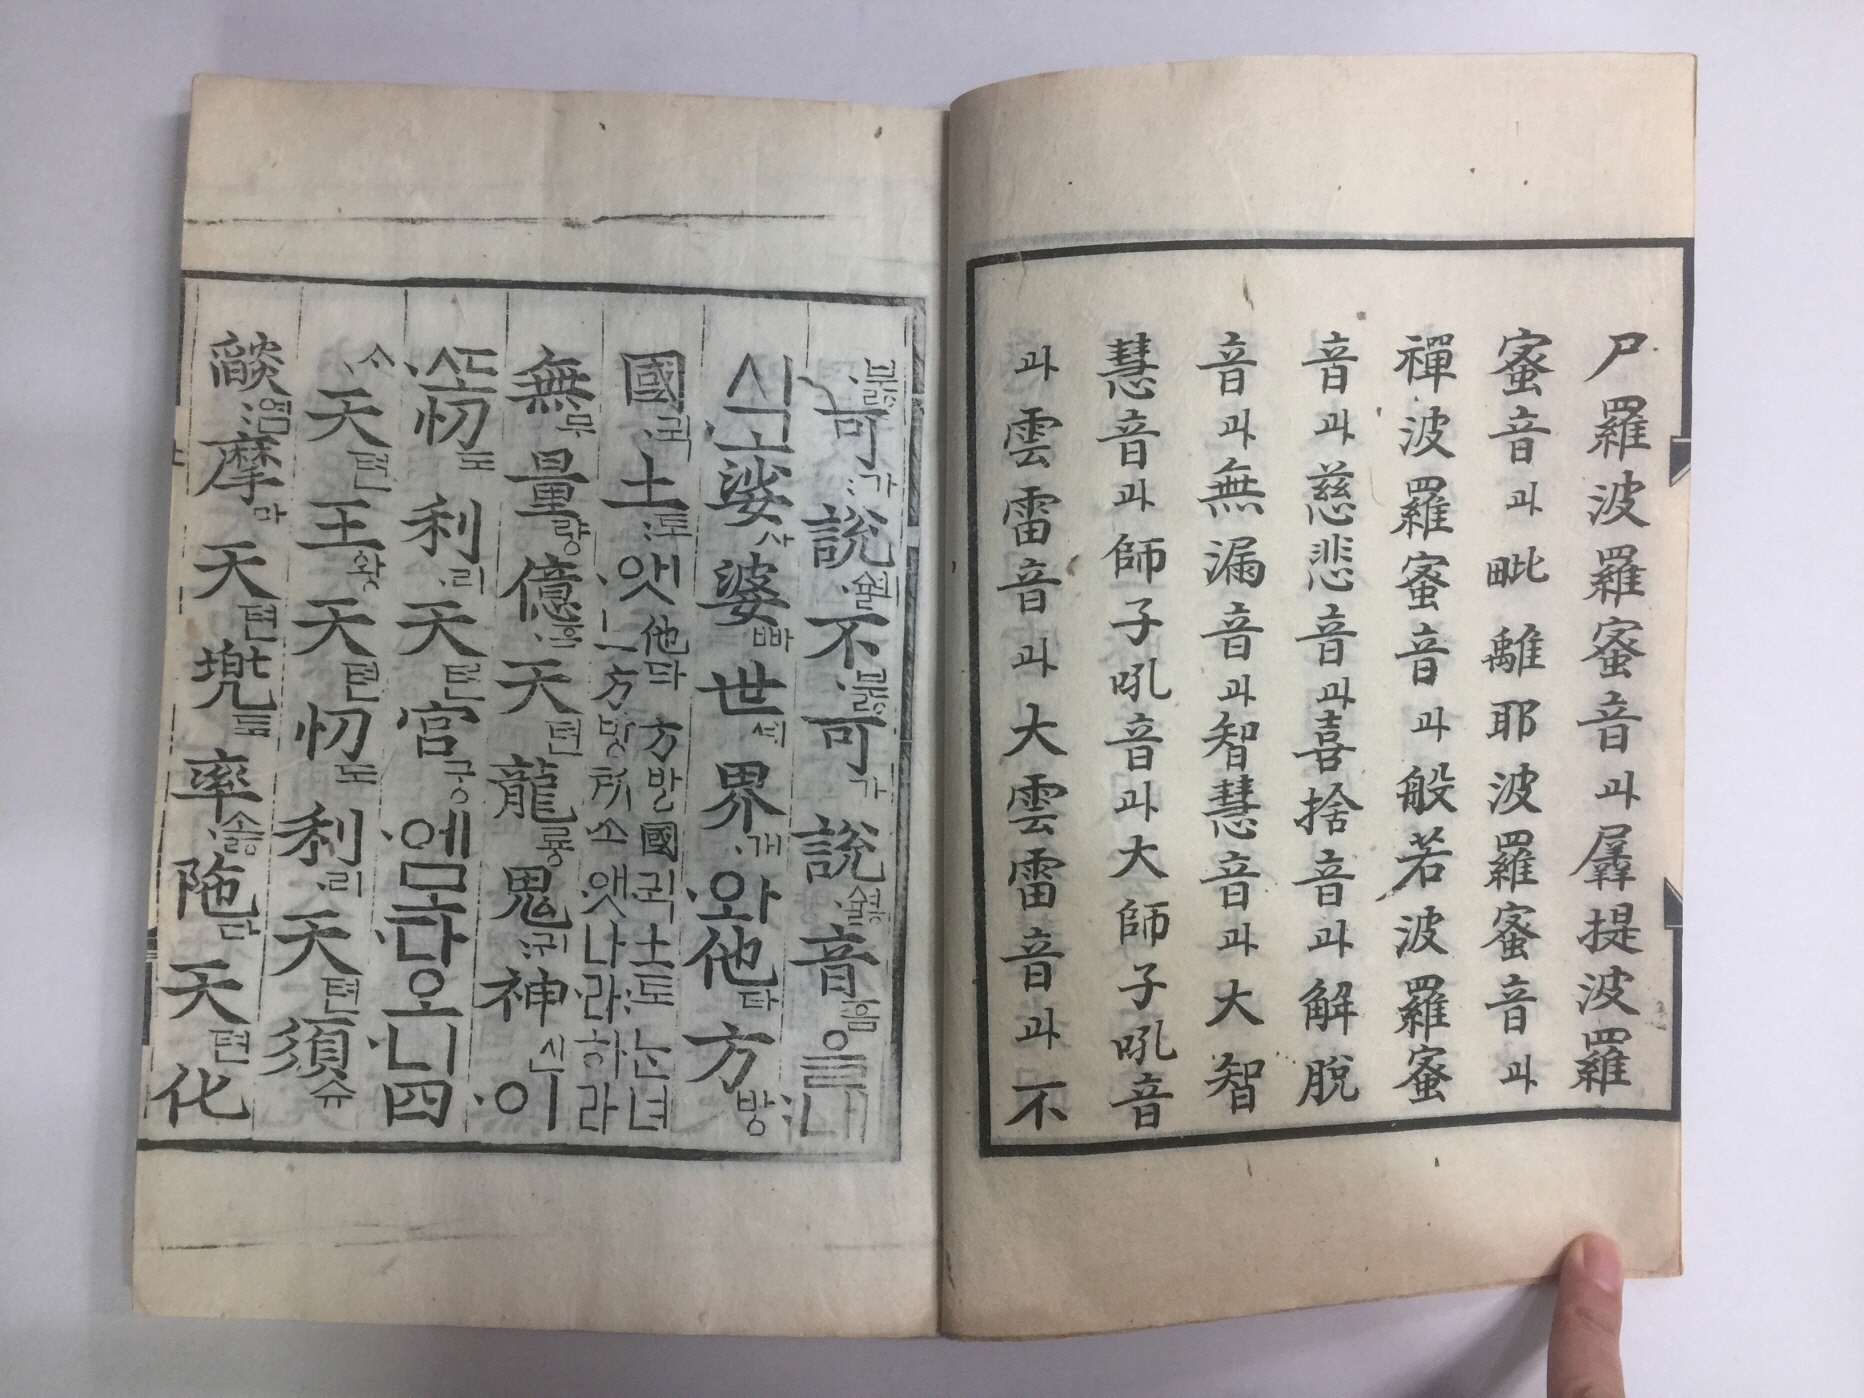 尸羅波羅蜜音과羼提波羅
蜜音과毗離耶波羅蜜音과
禪波羅蜜音과般若波羅蜜
音과慈悲音과喜捨音과解脫
音과無漏音과智慧音과大智
慧音과師子吼音과大師子吼音
과雲雷音과大雲雷音과不
·붏可:가說·쉃不·붏可:가說·쉃音흠을:내
시·고娑사婆빠世·셰界·개·와他타方방
國·귁土:토·앳他타方방國·귁土:토·는녀
느方방所:소·앳나·라하라
無무量·량億·흑天텬龍룡鬼:귀神신·이
·또忉도利·리天텬宮궁·에모·다오·니四
·ᄉᆞ天텬王왕天텬忉도利·리天텬須슈
燄:염摩마天텬兜듷率·솛陁따天텬化